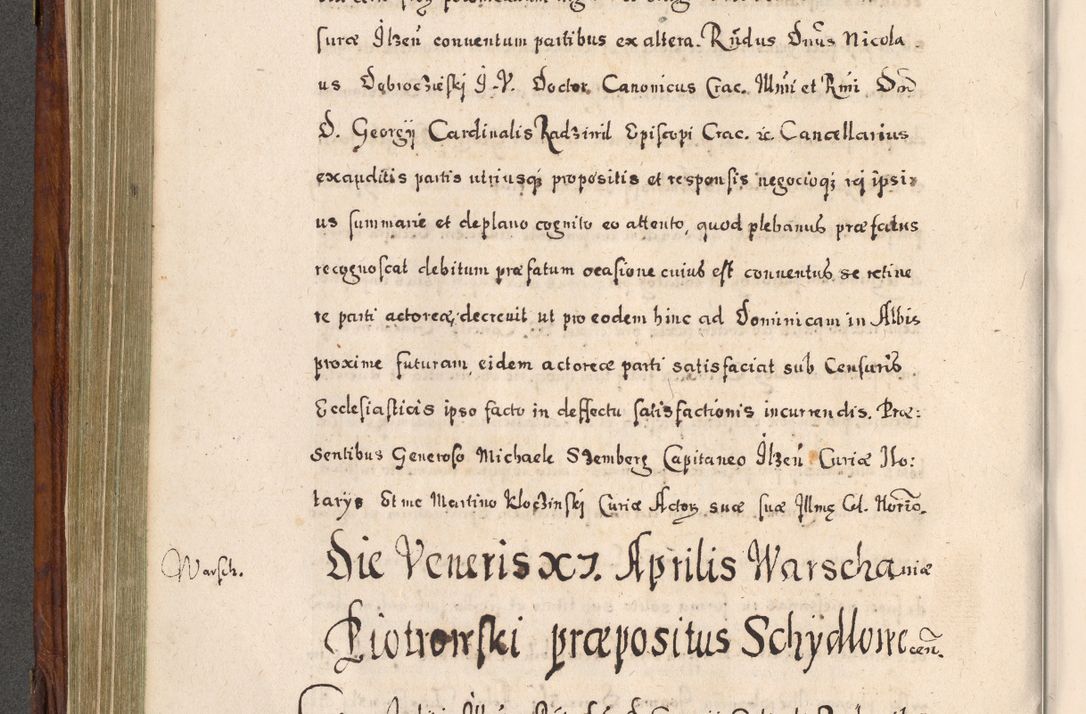 suræ Ilzen̄ conventum partibus ex altera. Rn̄dus Dn̄us Nicola
us Dobrocieski I. V. Doctor Canonicus Crac. Illmi et Rmi Dn̄i
D. Georgij Cardinalis Radziwil Episcopi Crac. &c. Cancellarius
exauditis partis utriusq3 propositis et responsis negocioq3 rei ipsi
us summarie et deplano cognito eo attento, quod plebanus præfatus
recognoscat debitum præfatum ocasione cuius est conventus se retine
re parti actoreæ, decrevit ut pro eodem hinc ad Dominicam in Albis
proxime futuram, eidem actoreæ parti satisfaciat sub Censuris
Ecclesiasticis ipso facto in deffectu satisfactionis incurrendis. Præ:
sentibus Generoso Michaele Szemberg Capitaneo Ilzen̄ Curiæ No:
tarys Et me Martino Kloczinski Curiæ Actor suæ Illmę Cel. Nor̄io.
Warsch.
Die Veneris XI. Aprilis Warschaviæ
Piotrowski præpositus Schydlowecen̄.